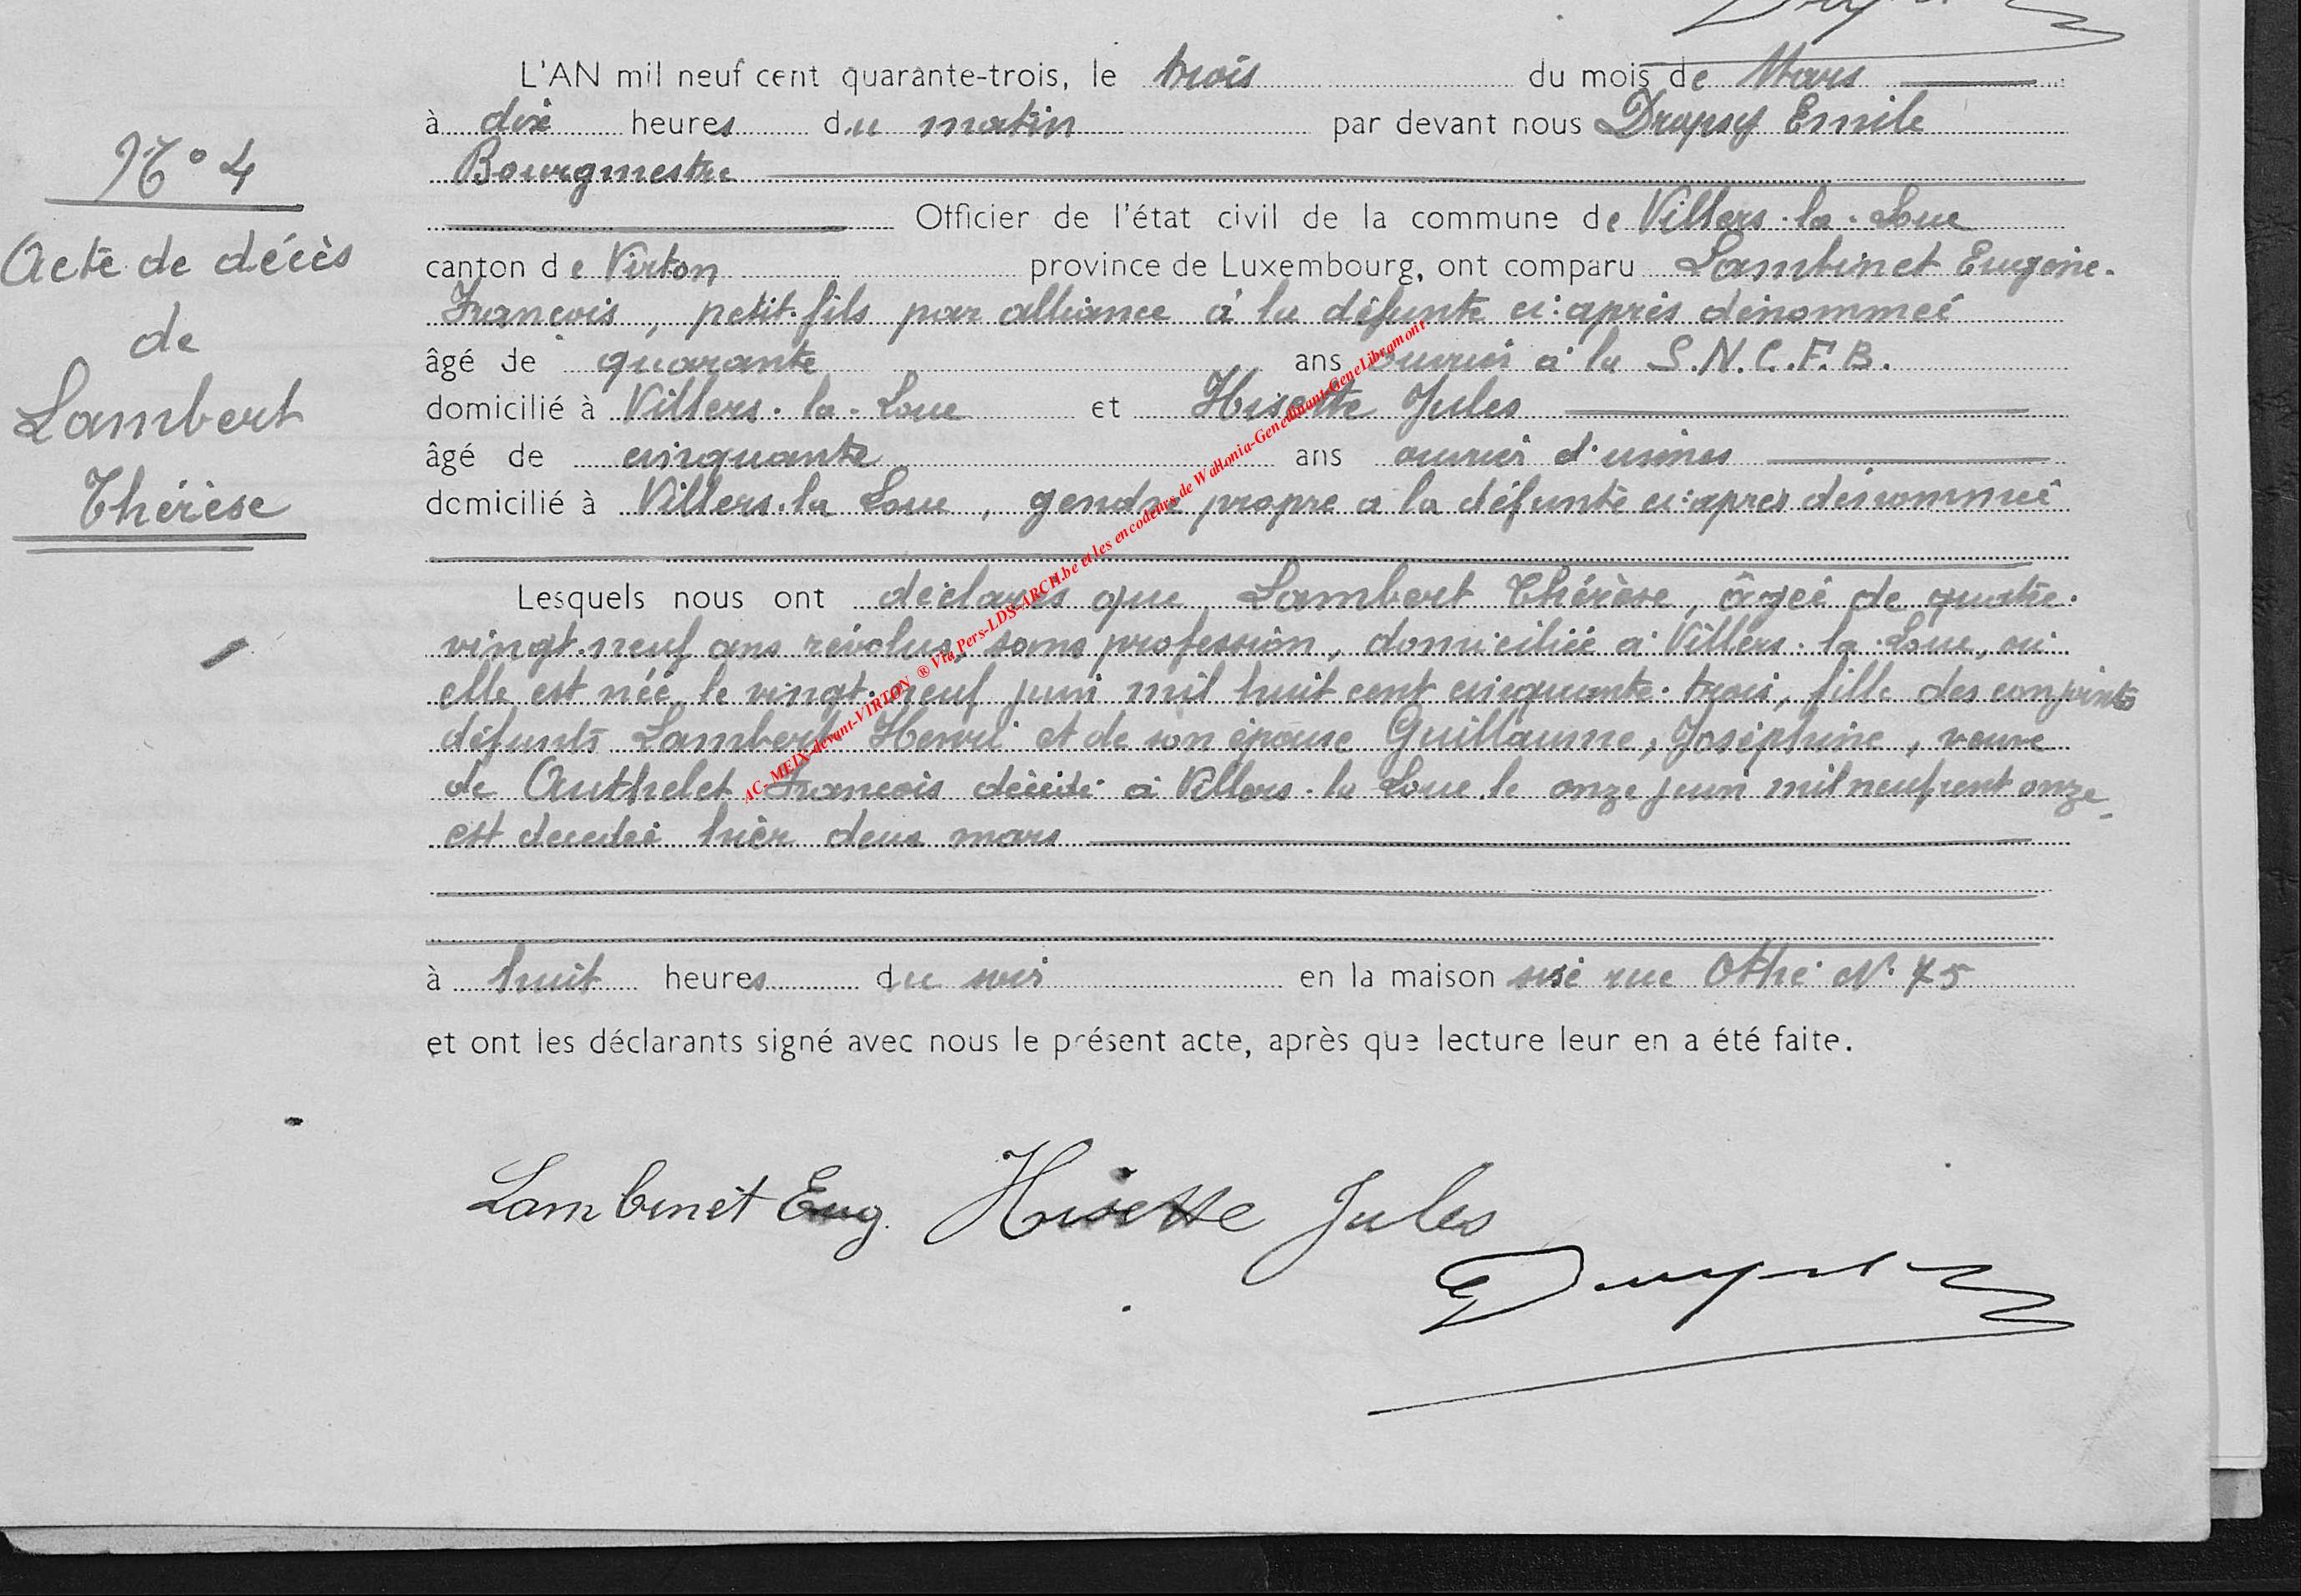 L'AN mil neuf cent quarante-trois, le trois du mois de Mars
à dix heures du matin par devant nous Drapsy Emile
Bourgmestre
Officier de l'état civil de la commune de Villers-la-Loue
canton de Virton province de Luxembourg, ont comparu Lambinet Eugène-
François, petit-fils par alliance à la défunte ci-après dénommée
âgé de quarante ans ouvrier à la S.N.C.F.B.
domicilié à Villers-la-Loue et Hisette Jules
âgé de cinquante ans ouvrier d'usines
domicilié à Villers-la Loue, gendre propre a la défunte ci-après dénommée
Lesquels nous ont déclarés que Lambert Thérèse, âgée de quatre-
vingt-neuf ans révolus, sans profession, domiciliée à Villers-la-Loue, où
elle est née le vingt-neuf juin mil huit cent cinquante-trois, fille des conjoints
défunts Lambert Henri et de son épouse Guillaume, Joséphine, veuve
de Authelet François décédé à Villers-la Loue le onze juin mil neuf cent onze
est decedée hièr deux mars
à huit heures du soir en la maison sise rue Othe N° 75
et ont les déclarants signé avec nous le présent acte, après que lecture leur en a été faite.
N° 4
Acte de décès
de
Lambert
Thérèse
Lambinet Eug. Hisette Jules
AC-MEIX-devant-VIRTON ® Via Pers-LDS-ARCH.be et les encodeurs de Wallonia-Genedinant-GeneLibramont